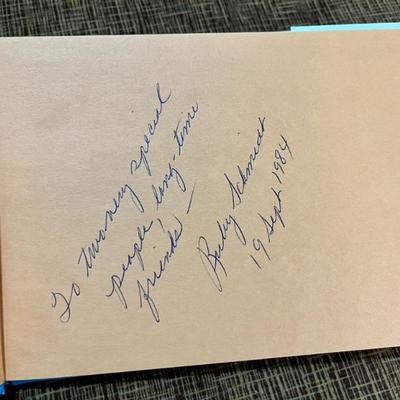 To two very special
people, long-time
friends —
Ruby Schmidt
19 Sept 1984